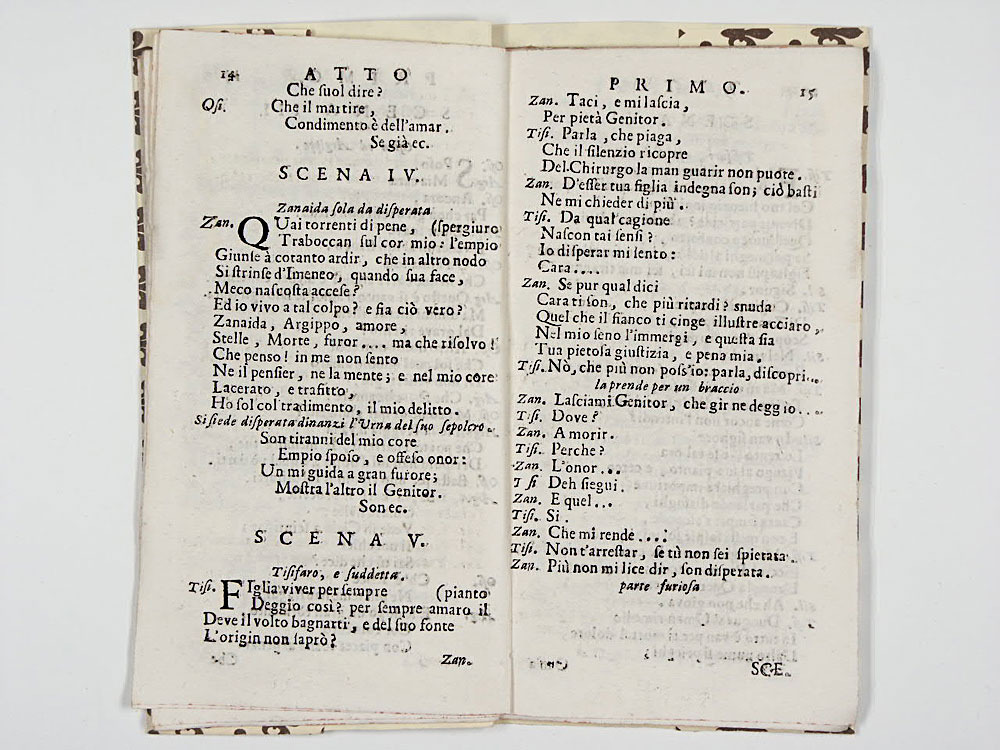 14 ATTO
Che suol dire?
Osi. Che il martire,
Condimento è dell'amar.
Se già ec.
SCENA IV.
Zanaida sola da disperata
Zan. QUai torrenti di pene, (spergiuro
Traboccan sul cor mio: l'empio
Giunse à cotanto ardir, che in altro nodo
Si strinse d'Imeneo, quando sua face,
Meco nascosta accese?
Ed io vivo a tal colpo? e fia ciò vero?
Zanaida, Argippo, amore,
Stelle, Morte, furor.... ma che risolvo!
Che penso! in me non sento
Ne il pensier, ne la mente; e nel mio core
Lacerato, e trafitto,
Ho sol col tradimento, il mio delitto.
Si siede disperata dinanzi l'Urna del suo sepolcro.
Son tiranni del mio core
Empio sposo, e offeso onor:
Un mi guida a gran furore;
Mostra l'altro il Genitor.
Son ec.
SCENA V.
Tisifaro, e suddetta.
Tisi. FIglia viver per sempre (pianto
Deggio così? per sempre amaro il
Deve il volto bagnarti, e del suo fonte
L'origin non saprò?
Zan.
PRIMO. 15
Zan. Taci, e mi lascia,
Per pietà Genitor.
Tisi. Parla, che piaga,
Che il silenzio ricopre
Del Chirurgo la man guarir non puote.
Zan. D'esser tua figlia indegna son; ciò basti
Ne mi chieder di più.
Tisi. Da qual cagione
Nascon tai sensi?
Io disperar mi sento:
Cara....
Zan. Se pur qual dici
Cara ti son, che più ritardi? snuda
Quel che il fianco ti cinge illustre acciaro,
Nel mio seno l'immergi, e questa sia
Tua pietosa giustizia, e pena mia.
Tisi. Nò, che più non poss'io: parla, discopri...
la prende per un braccio
Zan. Lasciami Genitor, che gir ne deggio...
Tisi. Dove?
Zan. A morir.
Tisi. Perche?
Zan. L'onor...
Tisi Deh siegui.
Zan. E quel...
Tisi. Si.
Zan. Che mi rende....
Tisi. Non t'arrestar, se tù non sei spietata.
Zan. Più non mi lice dir, son disperata.
parte furiosa
SCE.